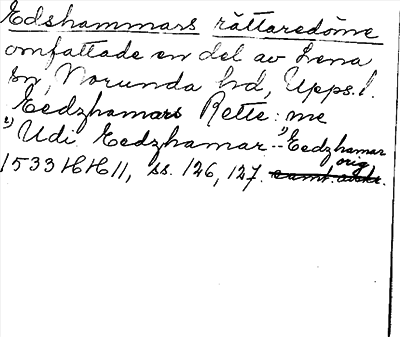 Edshammars rättaredöme
omfattade en del av Lena
sn, Norunda hd, Upps.l.
Eedzhamars Rette: me
1) Udi Eedzhamar -- 2) Eedzhamar
1533 HH 11, ss. 126, 127. orig.